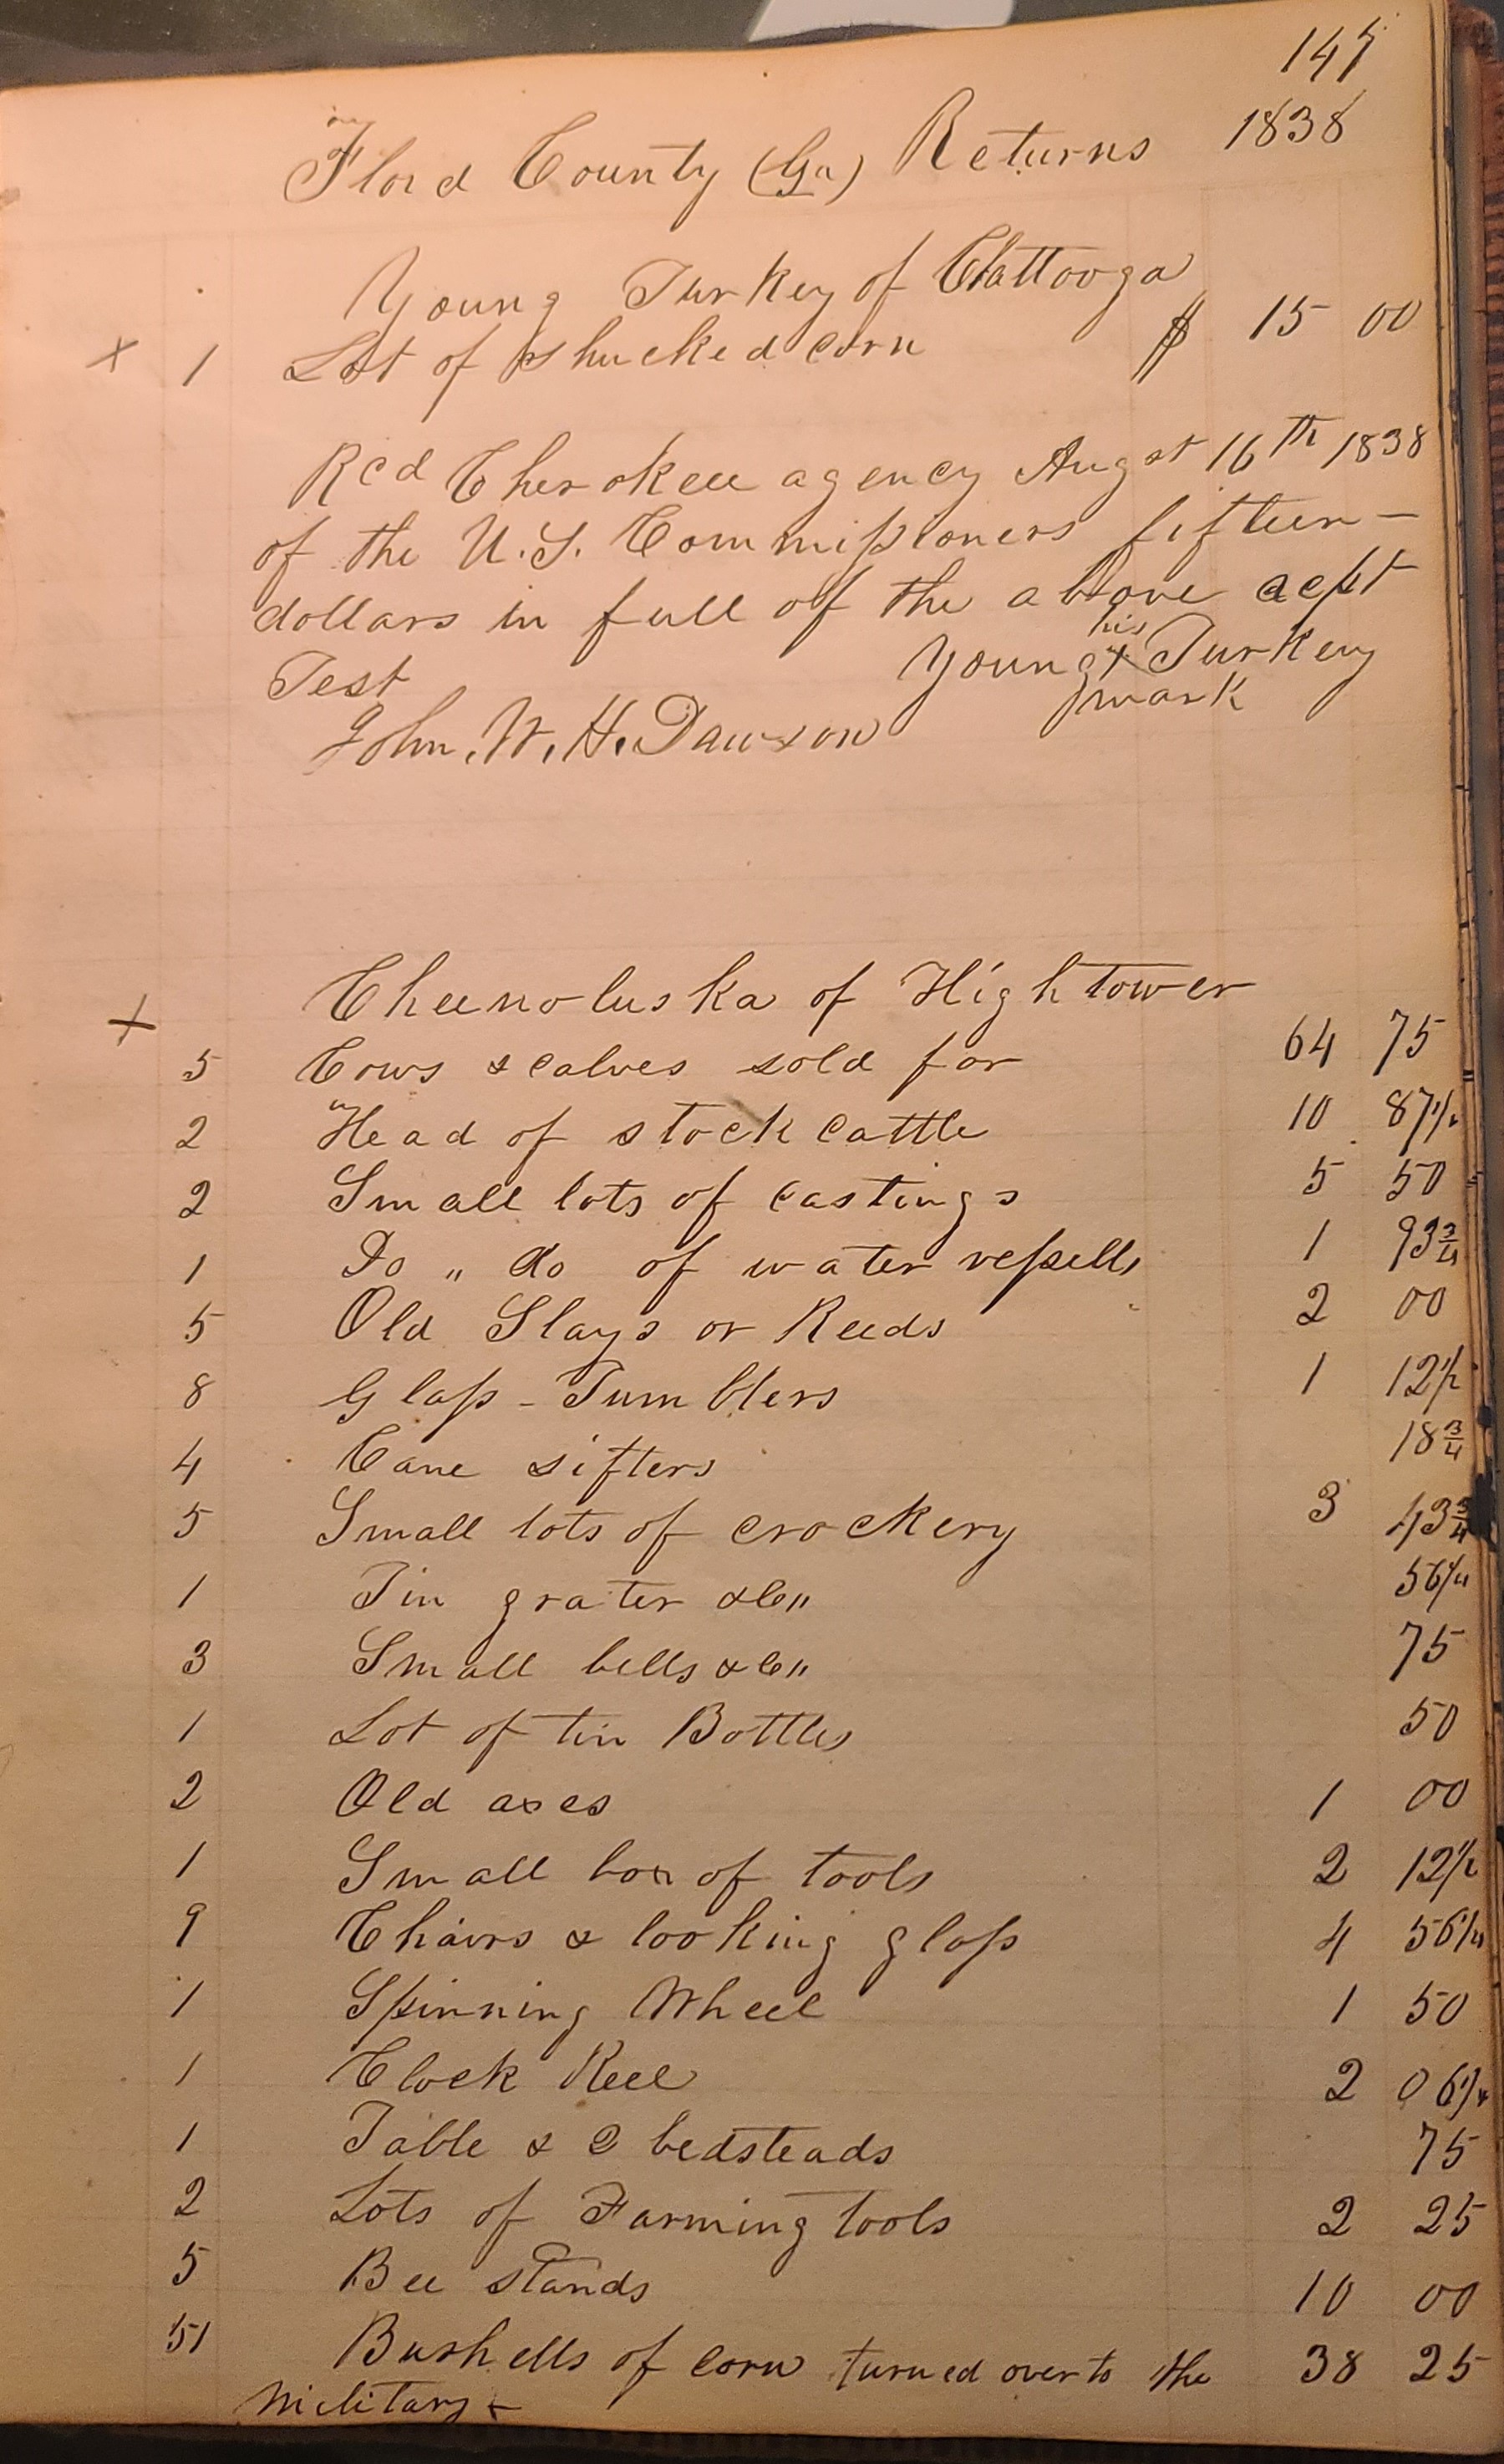 145
Floid County (Ga) Returns 1838
Young Turkey of Chattooga
x 1 Lot of shucked corn $ 15 00
Rcd Cherokee agency Augst 16th 1838
of the U.S. Commissioners fifteen —
dollars in full of the above acpt
his
Test Young x Turkey
mark
John. W. H. Dawson
Cheenoluska of Hightower
x 5 Cows & calves sold for 64 75
2 Head of stock cattle 10 87 1/2
2 Small lots of castings 5 50
1 Do " do of water vessells 1 93 3/4
5 Old Slays or Reeds 2 00
8 Glass - Tumblers 1 12 1/2
4 Cane sifters 18 3/4
5 Small lots of crockery 3 43 3/4
1 Tin grater &c" 56 1/4
3 Small bells &c" 75
1 Lot of tin Bottles 50
2 Old axes 1 00
1 Small box of tools 2 12 1/2
9 Chairs & looking glass 4 56 1/4
1 Spinning Wheel 1 50
1 Clock Reel 2 06 1/4
1 Table & 2 bedsteads 75
2 Lots of Farming tools 2 25
5 Bee stands 10 00
51 Bushells of corn turned over to the 38 25
military